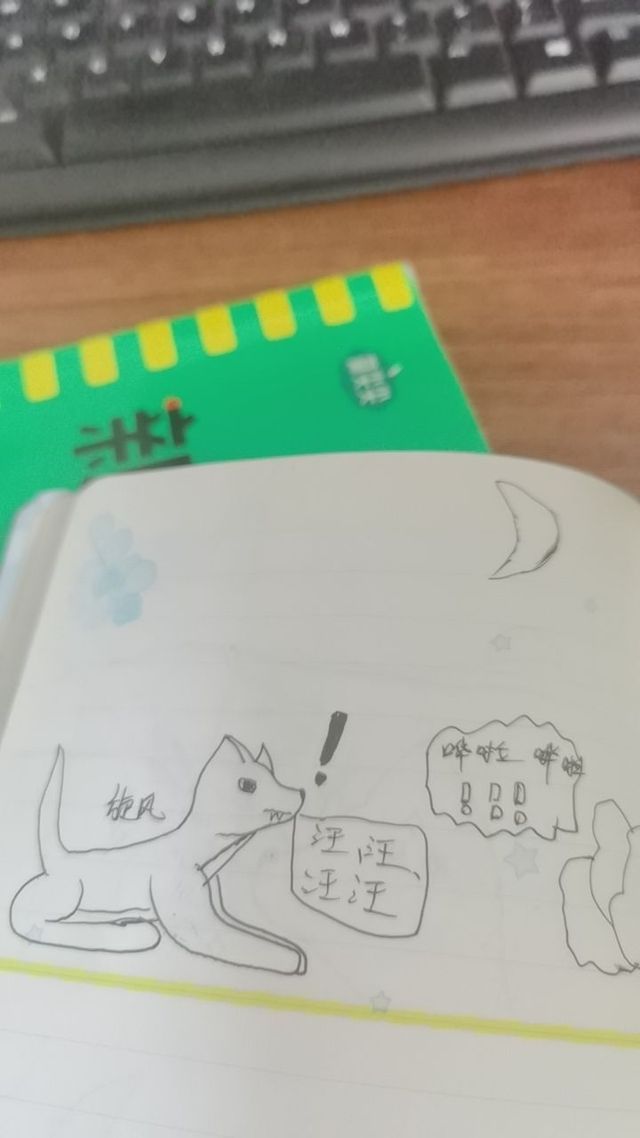 旋风
!
汪汪、
汪汪
哗啦 哗啦
!!!